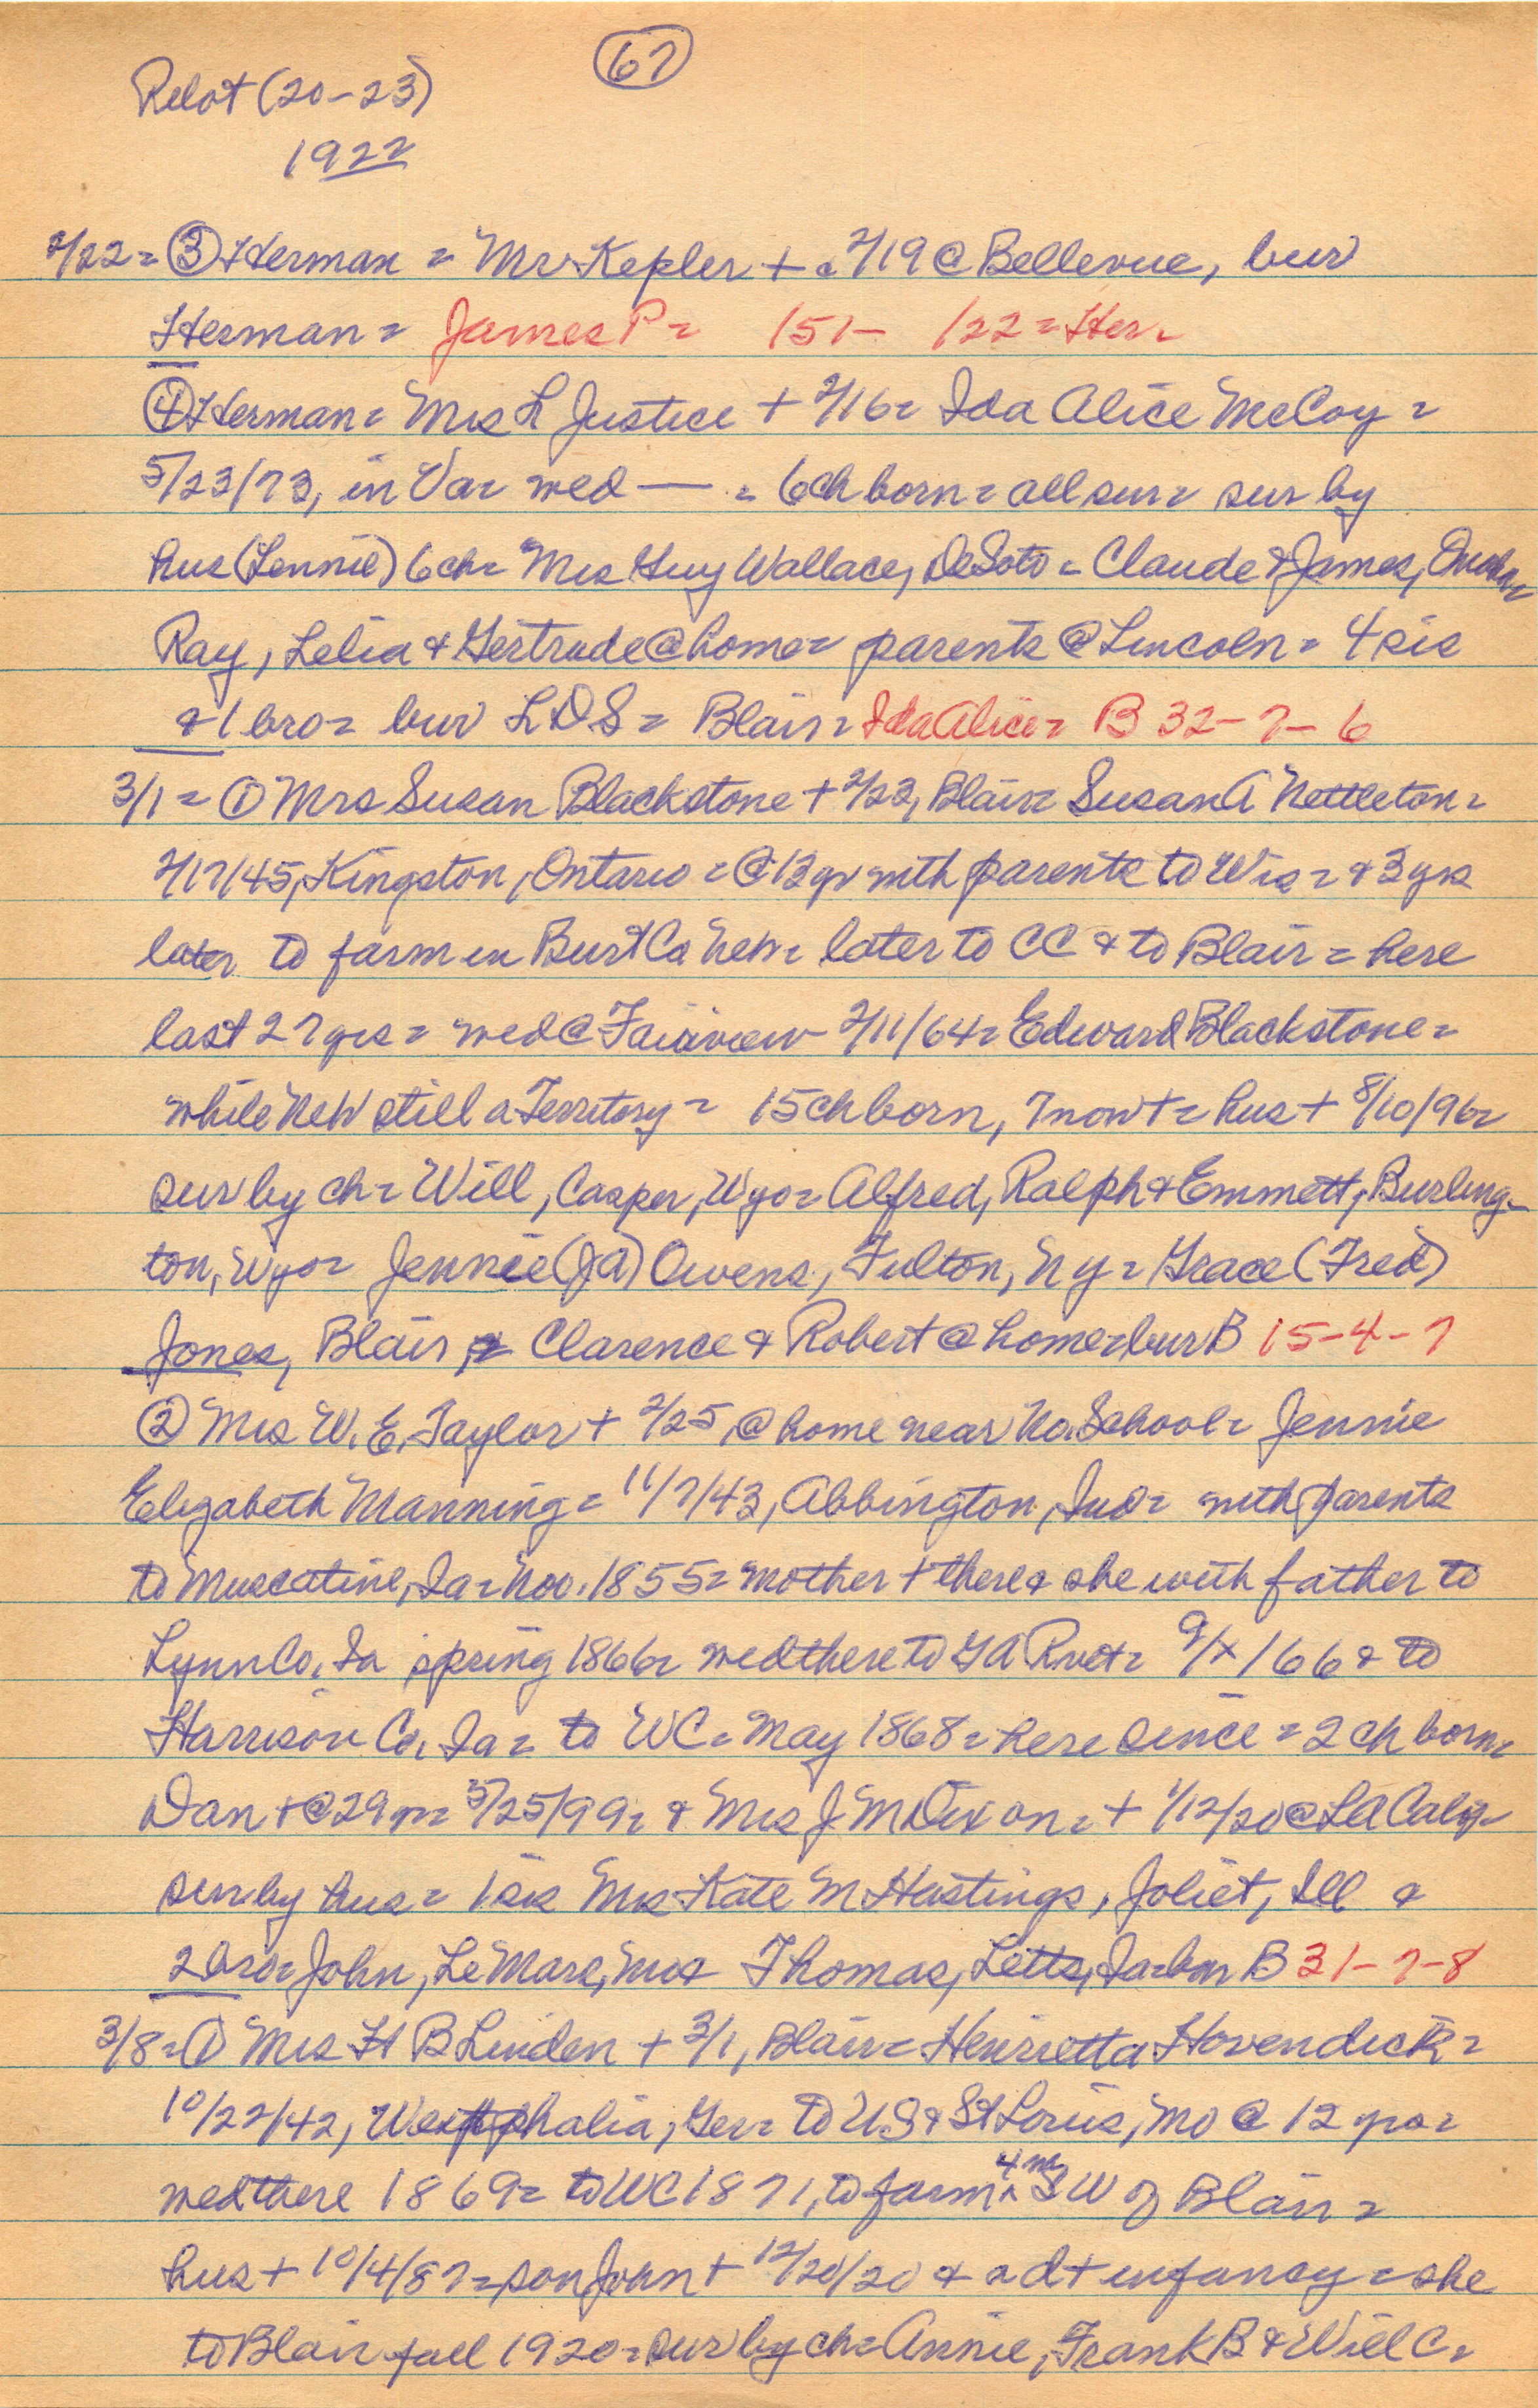 67
Pilot (20-23)
1922
2/22 = ③ Herman = Mr Kepler + 2/19 @ Bellevue, bur
Herman = James P = 151- 122 = Her =
④ Herman = Mrs L Justice + 2/16 = Ida Alice McCoy =
5/23/73, in Va = wed — = 6 ch born = all sur = sur by
hus (Lennie) 6 ch = Mrs Guy Wallace, DeSoto = Claude & James, Omaha =
Ray, Lelia & Gertrude @ home = parents @ Lincoln = 4 sis
& 1 bro = bur LDS = Blair = Ida Alice = B 32-7-6
3/1 = ① Mrs Susan Blackstone + 2/23, Blair = Susan A Nettleton =
2/17/45, Kingston, Ontario = @ 13 yr with parents to Wis = & 3 yrs
later to farm in Burt Co Neb = later to CC & to Blair = here
last 27 yrs = wed @ Fairview 2/11/64 = Edward Blackstone =
while Neb still a Territory = 15 ch born, 7 now + = hus + 8/10/96 =
sur by ch = Will, Casper, Wyo = Alfred, Ralph & Emmett, Burling-
ton, Wyo = Jennie (JA) Owens, Fulton, NY = Grace (Fred)
Jones, Blair, Clarence & Robert @ home = bur B 15-4-7
② Mrs W. E. Taylor + 2/25, @ home near No. School = Jennie
Elizabeth Manning = 11/7/43, Abbington, Ind = with parents
to Muscatine, Ia = Nov. 1855 = mother + there & she with father to
Lynn Co, Ia spring 1866 = wed there to GA = 9/x/66 & to
Harrison Co, Ia = to WC = May 1868 = here since = 2 ch born =
Dan + @ 29 yr = 5/25/99 = & Mrs J M Dixon = + 1/12/20 @ LA Calif =
sur by hus = 1 sis Mrs Kate M Hastings, Joliet, Ill &
2 bro = John, LeMars, & Thomas, Letts, Ia = bur B 31-7-8
3/8 = ① Mrs H B Linden + 3/1, Blair = Henrietta Hovendick =
10/22/42, Westphalia, Ger = to US & St Louis, Mo @ 12 yrs =
wed there 1869 = to WC 1871, to farm 4 m SW of Blair =
hus + 10/4/87 = son John + 12/20/20 & a d + infancy = she
to Blair fall 1920 = sur by ch = Annie, Frank B & Will C =